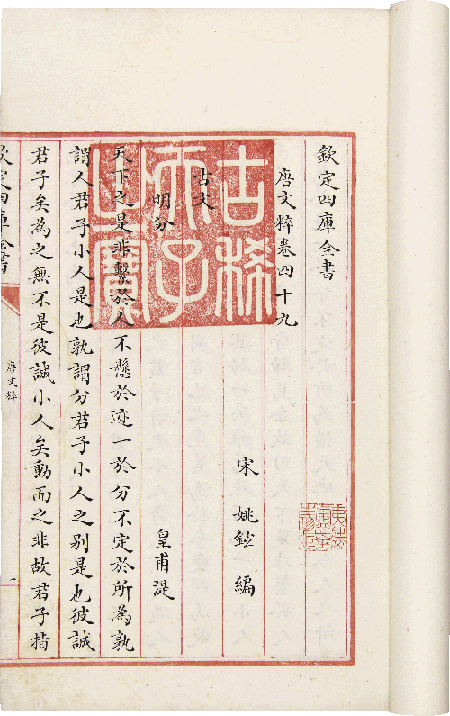 欽定四庫全書
唐文粹卷四十九
宋 姚鉉 編
古文
明分 皇甫湜
天下之是非繫於人不懸於迹一於分不定於所為孰
謂人君子小人是也孰謂分君子小人之別是也彼誠
君子矣為之無不是彼誠小人矣動而之非故君子指
欽定四庫全書
唐文粹
一
古稀
天子
之寶